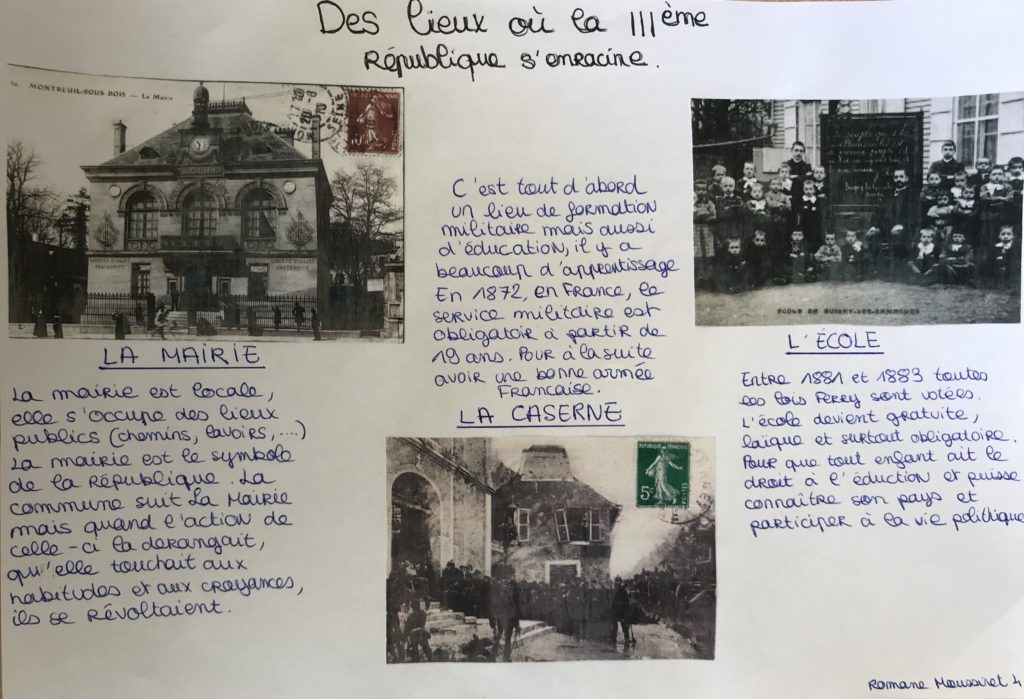 Des lieux où la IIIème
République s'enracine.
MONTREUIL-SOUS-BOIS - La Mairie
MAIRIE
LIBERTÉ EGALITÉ
FRATERNITÉ
LIBERTÉ EGALITÉ
FRATERNITÉ
LA MAIRIE
La mairie est locale,
elle s'occupe des lieux
publics (chemins, lavoirs,...)
La mairie est le symbole
de la République. La
commune suit la Mairie
mais quand l'action de
celle-ci la derangait,
qu'elle touchait aux
habitudes et aux croyances,
ils se révoltaient.
C'est tout d'abord
un lieu de formation
militaire mais aussi
d'éducation, il y a
beaucoup d'apprentissage
En 1872, en France, le
service militaire est
obligatoir à partir de
19 ans. Pour à la suite
avoir une bonne armée
Francaise.
LA CASERNE
REPUBLIQUE FRANÇAISE
5c
POSTES
L'ÉCOLE
Entre 1881 et 1883 toutes
les lois Ferry sont votées.
L'école devient gratuite,
laïque et surtout obligatoire.
Pour que tout enfant ait le
droit à l'éduction et puisse
connaître son pays et
participer à la vie polittique
Romane